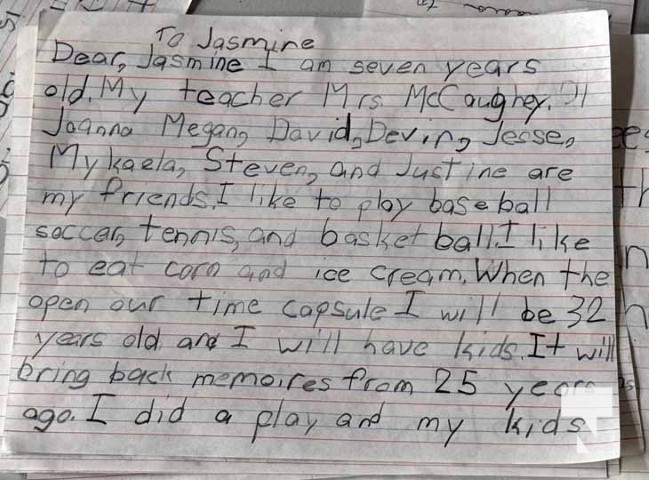 To Jasmine
Dear, Jasmine I am seven years
old. My teacher Mrs. McCaughey.
Joanna Megan, David, Devin, Jesse,
Mykaela, Steven, and Justine are
my friends. I like to play baseball
soccer, tennis, and basketball. I like
to eat corn and ice cream. When the
open our time capsule I will be 32
years old and I will have kids. It will
bring back memoires from 25 years
ago. I did a play and my kids